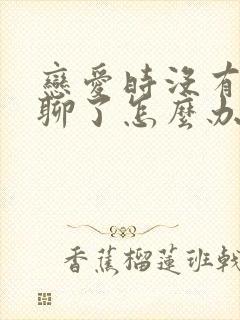 戀愛時沒有
聊了怎麼办
香蕉榴蓮班戟